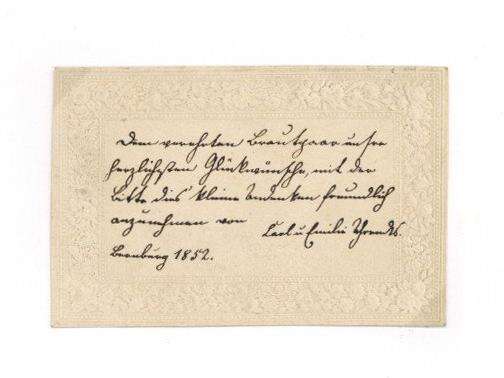 Dem verehrten Brautpaar unsre
herzlichsten Glückwünsche, mit der
Bitte dies kleine Andenken freundlich
anzunehmen von
Carl u Emilie
Bernburg 1852.